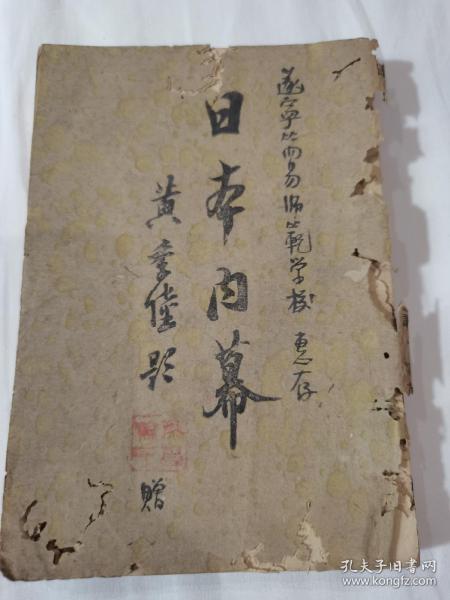 遂宁简易师范学校 惠存
日本内幕
黄季陆题
赠
孔夫子旧书网
www.kongfz.com